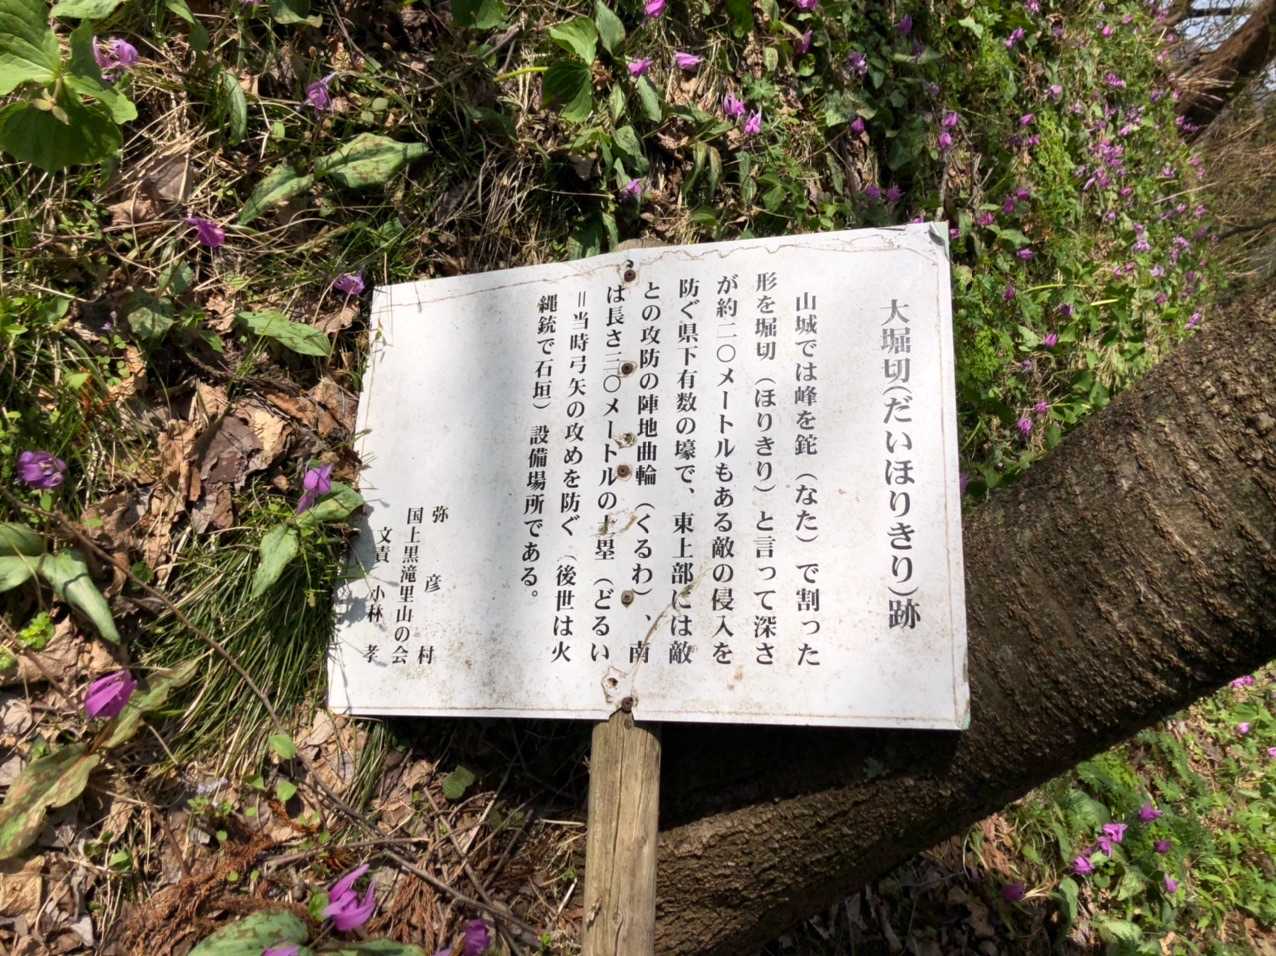 大堀切(だいほりきり)跡
山城では峰を鉈(なた)で割った
形を堀切(ほりきり)と言って深さ
が約二〇メートルもある敵の侵入を
防ぐ県下有数の壕で、東上部には敵
との攻防の陣地曲輪(くるわ)、南
は長さ三〇メートルの土塁(どるい
=当時弓矢の攻めを防ぐ(後世は火
縄銃で石垣)設備場所である。
弥彦村
国上黒滝里山の会
文責 小林 孝